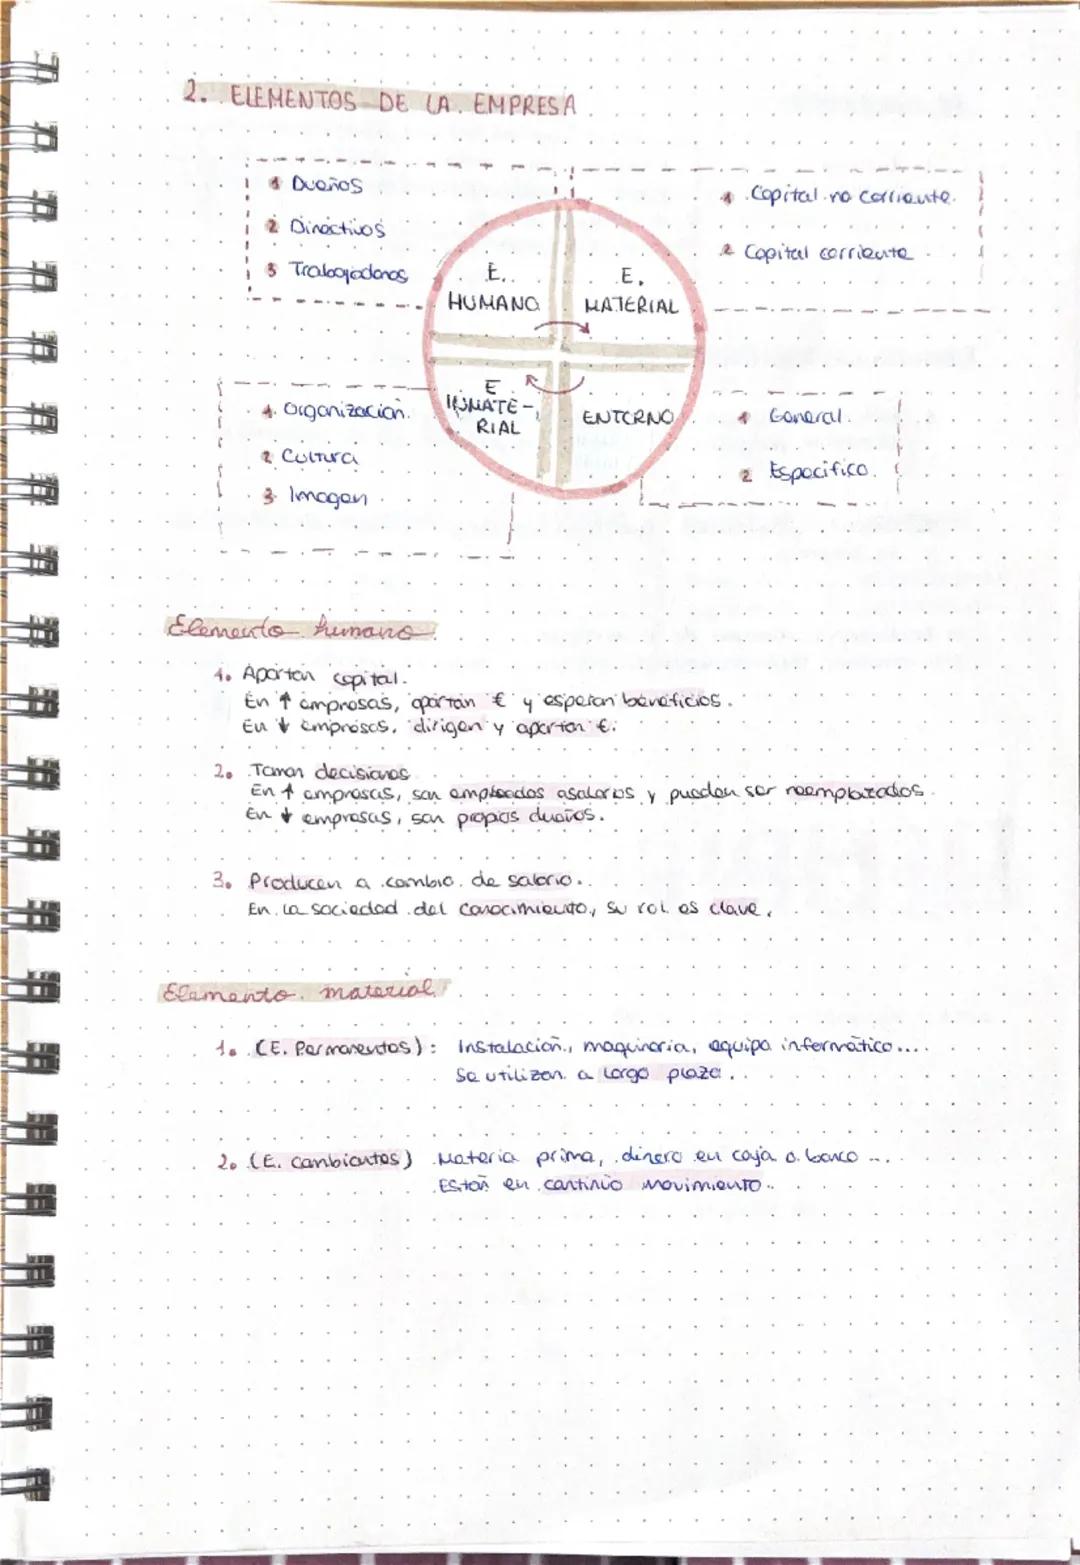 2. ELEMENTOS DE LA EMPRESA
1 Dueños
2 Directivos
3 Trabajadores
E. HUMANO
E. MATERIAL
1 Capital no corriente.
2 Capital corriente
1. Organización.
2 Cultura
3. Imagen
E INMATE-
RIAL
ENTORNO
1 General.
2 Especifico.
Elemento humano.
1. Aportan capital.
En ↑ empresas, aportan € y esperan beneficios.
En ↓ empresas, dirigen y aportan €.
2. Toman decisiones
En ↑ empresas, son empleados asalarios y pueden ser reemplazados.
En ↓ empresas, son propios dueños.
3. Producen a cambio de salario.
En la sociedad del conocimiento, su rol es clave.
Elemento material
1. (E. Permanentes): Instalación, maquinaria, equipo informático...
Se utilizan a largo plazo.
2. (E. cambiantes) Materia prima, dinero en caja o banco ...
Están en continuo movimiento.